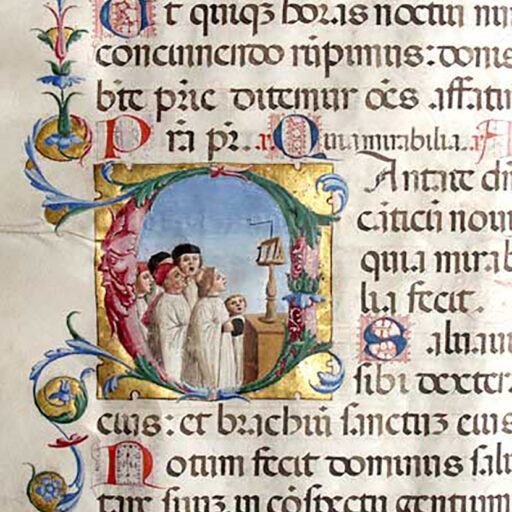 Ut quiqꝫ horas noctiū
concinnendo rūpimus: donis
bt̄e pr̄ie ditemur oēs affati
Pr̄a pr̄. a. Quia mirabilia. a
Cantate dn̄
cāticū nou
quia mirab
lia fecit.
Saluaui
sibi dexter
eius: et brachiū sanctuꝫ eius
Notum fecit dominus salu
tare suuꝫ in cōspectu gentium